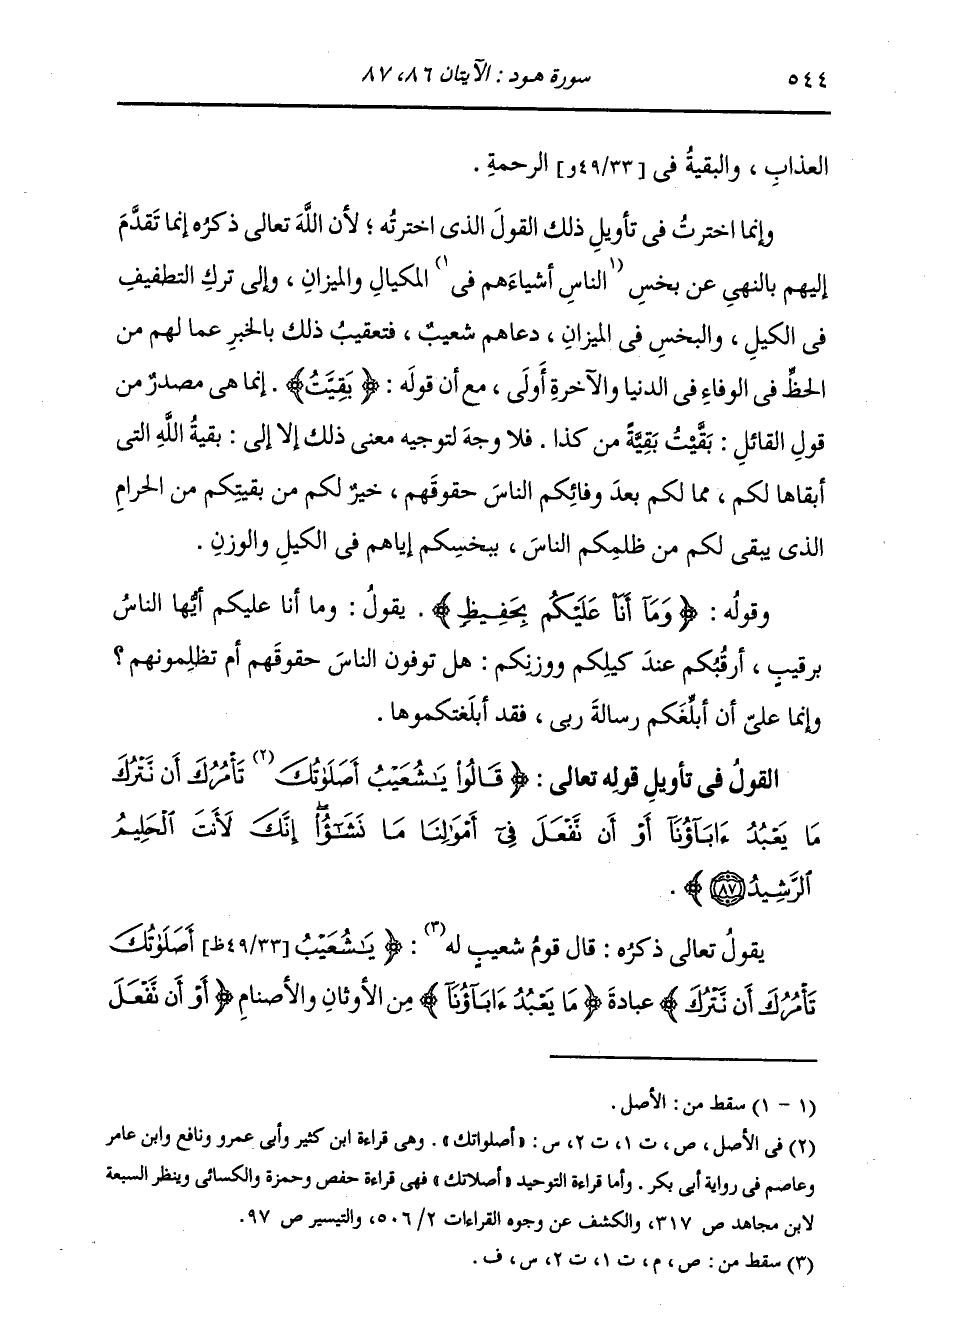 ٥٤٤ سورة هود : الآيتان ٨٦، ٨٧
العذابِ ، والبقيةُ فى [٤٩/٣٣و] الرحمةِ .
وإنما اخترتُ فى تأويلِ ذلك القولَ الذى اخترتُه ؛ لأن اللَّهَ تعالى ذكرُه إنما تَقدَّمَ
إليهم بالنهىِ عن بخسِ (١ الناسِ أشياءَهم فى ١) المكيالِ والميزانِ ، وإلى تركِ التطفيفِ
فى الكيلِ ، والبخسِ فى الميزانِ ، دعاهم شعيبٌ ، فتعقيبُ ذلك بالخبرِ عما لهم من
الحظِّ فى الوفاءِ فى الدنيا والآخرةِ أَولَى ، مع أن قولَه : ﴿ بَقِيَّتُ ﴾ . إنما هى مصدرٌ من
قولِ القائلِ : بَقَّيْتُ بَقِيَّةً من كذا . فلا وجهَ لتوجيه معنى ذلك إلا إلى : بقيةُ اللَّهِ التى
أبقاها لكم ، مما لكم بعدَ وفائِكم الناسَ حقوقَهم ، خيرٌ لكم من بقيتِكم من الحرامِ
الذى يبقى لكم من ظلمِكم الناسَ ، ببخسِكم إياهم فى الكيلِ والوزنِ .
وقولُه : ﴿ وَمَآ أَنَا۠ عَلَيْكُم بِحَفِيظٍ ﴾ . يقولُ : وما أنا عليكم أيُّها الناسُ
برقيبٍ ، أرقُبُكم عندَ كيلِكم ووزنِكم : هل توفون الناسَ حقوقَهم أم تظلِمونهم ؟
وإنما علىَّ أن أبلِّغَكم رسالةَ ربى ، فقد أبلَغتكموها .
القولُ فى تأويلِ قولِه تعالى : ﴿ قَالُوا۟ يَـٰشُعَيْبُ أَصَلَوٰتُكَ (٢) تَأْمُرُكَ أَن نَّتْرُكَ
مَا يَعْبُدُ ءَابَآؤُنَآ أَوْ أَن نَّفْعَلَ فِىٓ أَمْوَٰلِنَا مَا نَشَـٰٓؤُا۟ ۖ إِنَّكَ لَأَنتَ ٱلْحَلِيمُ
ٱلرَّشِيدُ ٨٧ ﴾ .
يقولُ تعالى ذكرُه : قال قومُ شعيبٍ له (٣) : ﴿ يَـٰشُعَيْبُ [٤٩/٣٣ظ] أَصَلَوٰتُكَ
تَأْمُرُكَ أَن نَّتْرُكَ ﴾ عبادةَ ﴿ مَا يَعْبُدُ ءَابَآؤُنَآ ﴾ مِن الأوثانِ والأصنامِ ﴿ أَوْ أَن نَّفْعَلَ
(١ - ١) سقط من : الأصل .
(٢) فى الأصل ، ص ، ت ١، ت ٢، س : « أصلواتك » . وهى قراءة ابن كثير وأبى عمرو ونافع وابن عامر
وعاصم فى رواية أبى بكر . وأما قراءة التوحيد « أصلاتك » فهى قراءة حفص وحمزة والكسائى وينظر السبعة
لابن مجاهد ص ٣١٧، والكشف عن وجوه القراءات ٢/ ٥٠٦، والتيسير ص ٩٧.
(٣) سقط من : ص ، م ، ت ١، ت ٢، س ، ف .